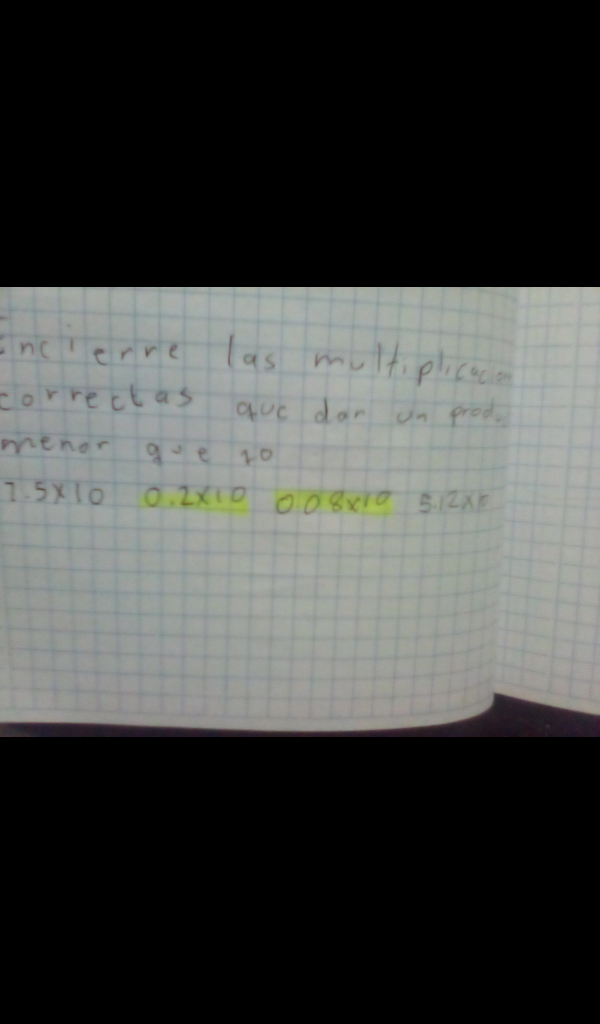 Encierre las multiplicacion
correctas que dan un prod
menor que 10
7.5x10 0.2x10 0.08x10 5.12x10